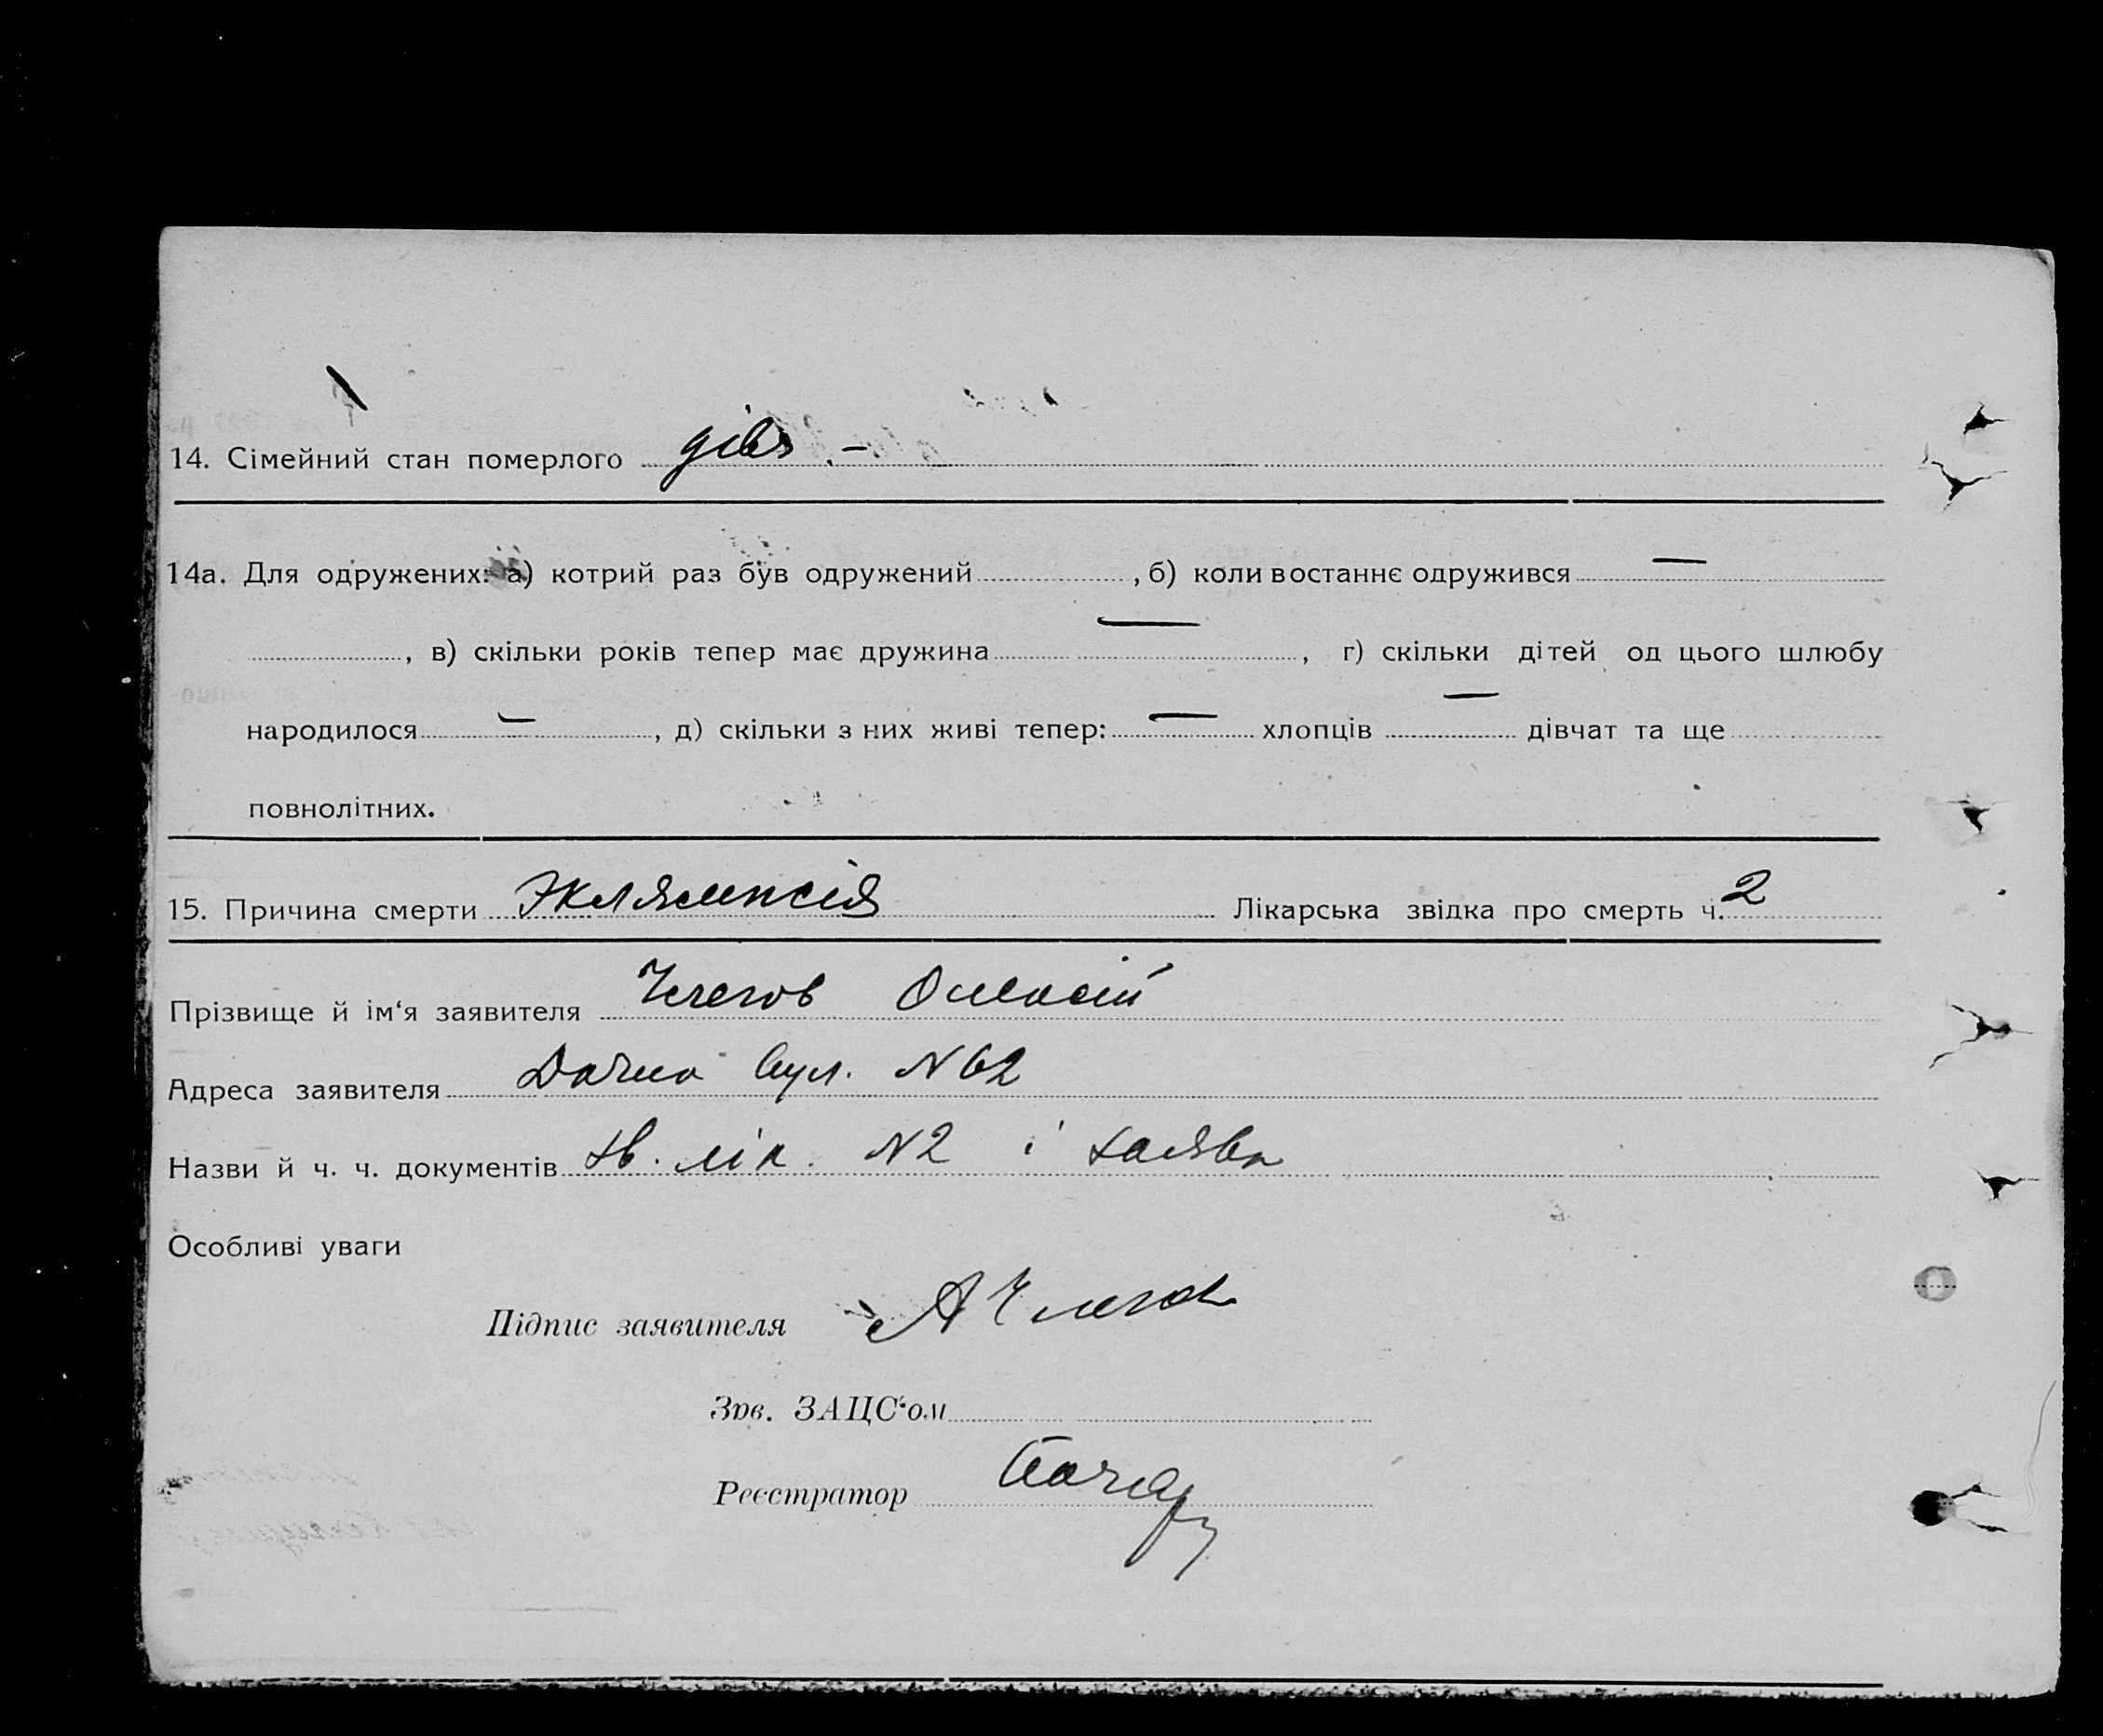 14. Сімейний стан померлого дівч. –
14а. Для одружених: а) котрий раз був одружений , б) коли востаннє одружився —
, в) скільки років тепер має дружина — , г) скільки дітей од цього шлюбу
народилося — , д) скільки з них живі тепер: — хлопців — дівчат та ще
повнолітних.
15. Причина смерти Эклямпсія Лікарська звідка про смерть ч. 2
Прізвище й ім'я заявителя Олексій
Адреса заявителя Дачна вул. N 62
Назви й ч. ч. документів зв. лік. N2 і заява
Особливі уваги
Підпис заявителя
Зав. ЗАЦС'ом
Реєстратор